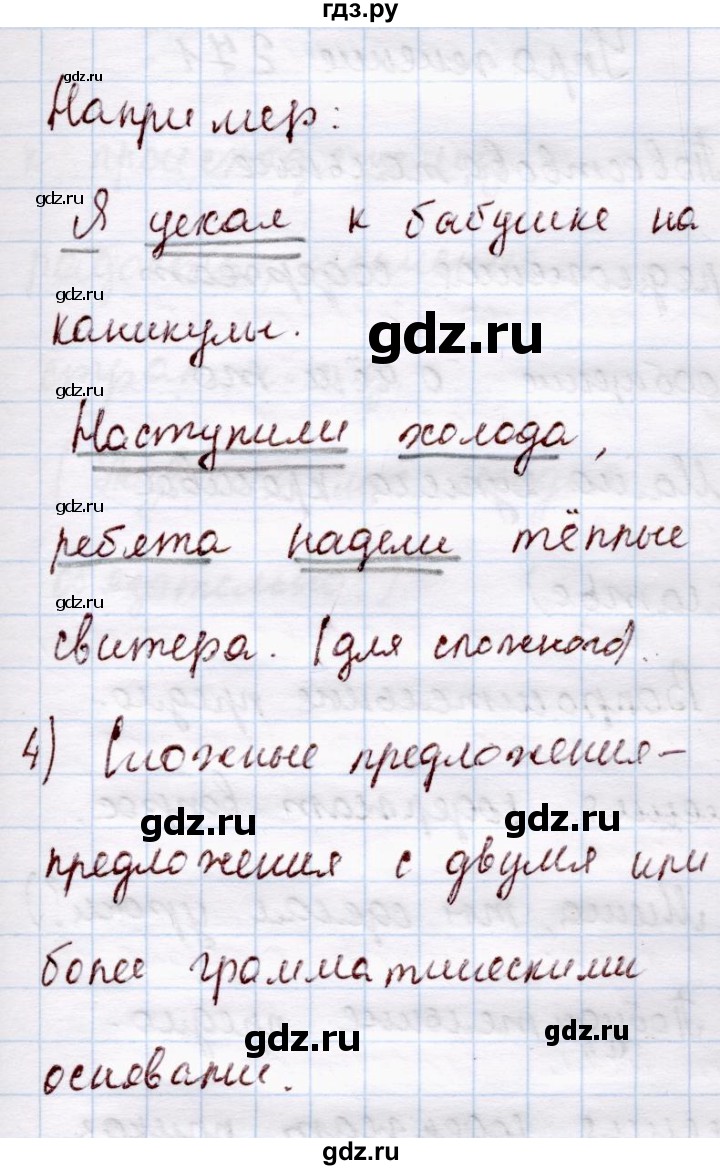 гдз.ру
gdz.ru
Например:
gdz.ru
Я уехал к бабушке на
gdz.ru
каникулы.
gdz.ru
gdz.ru
Наступили холода,
gdz.ru
ребята надели тёплые
gdz.ru
свитера. (для сложного).
4) Сложные предложения–
gdz.ru
gdz.ru
предложения с двумя или
более грамматическими
gdz.ru
gdz.ru
основами.
gdz.ru